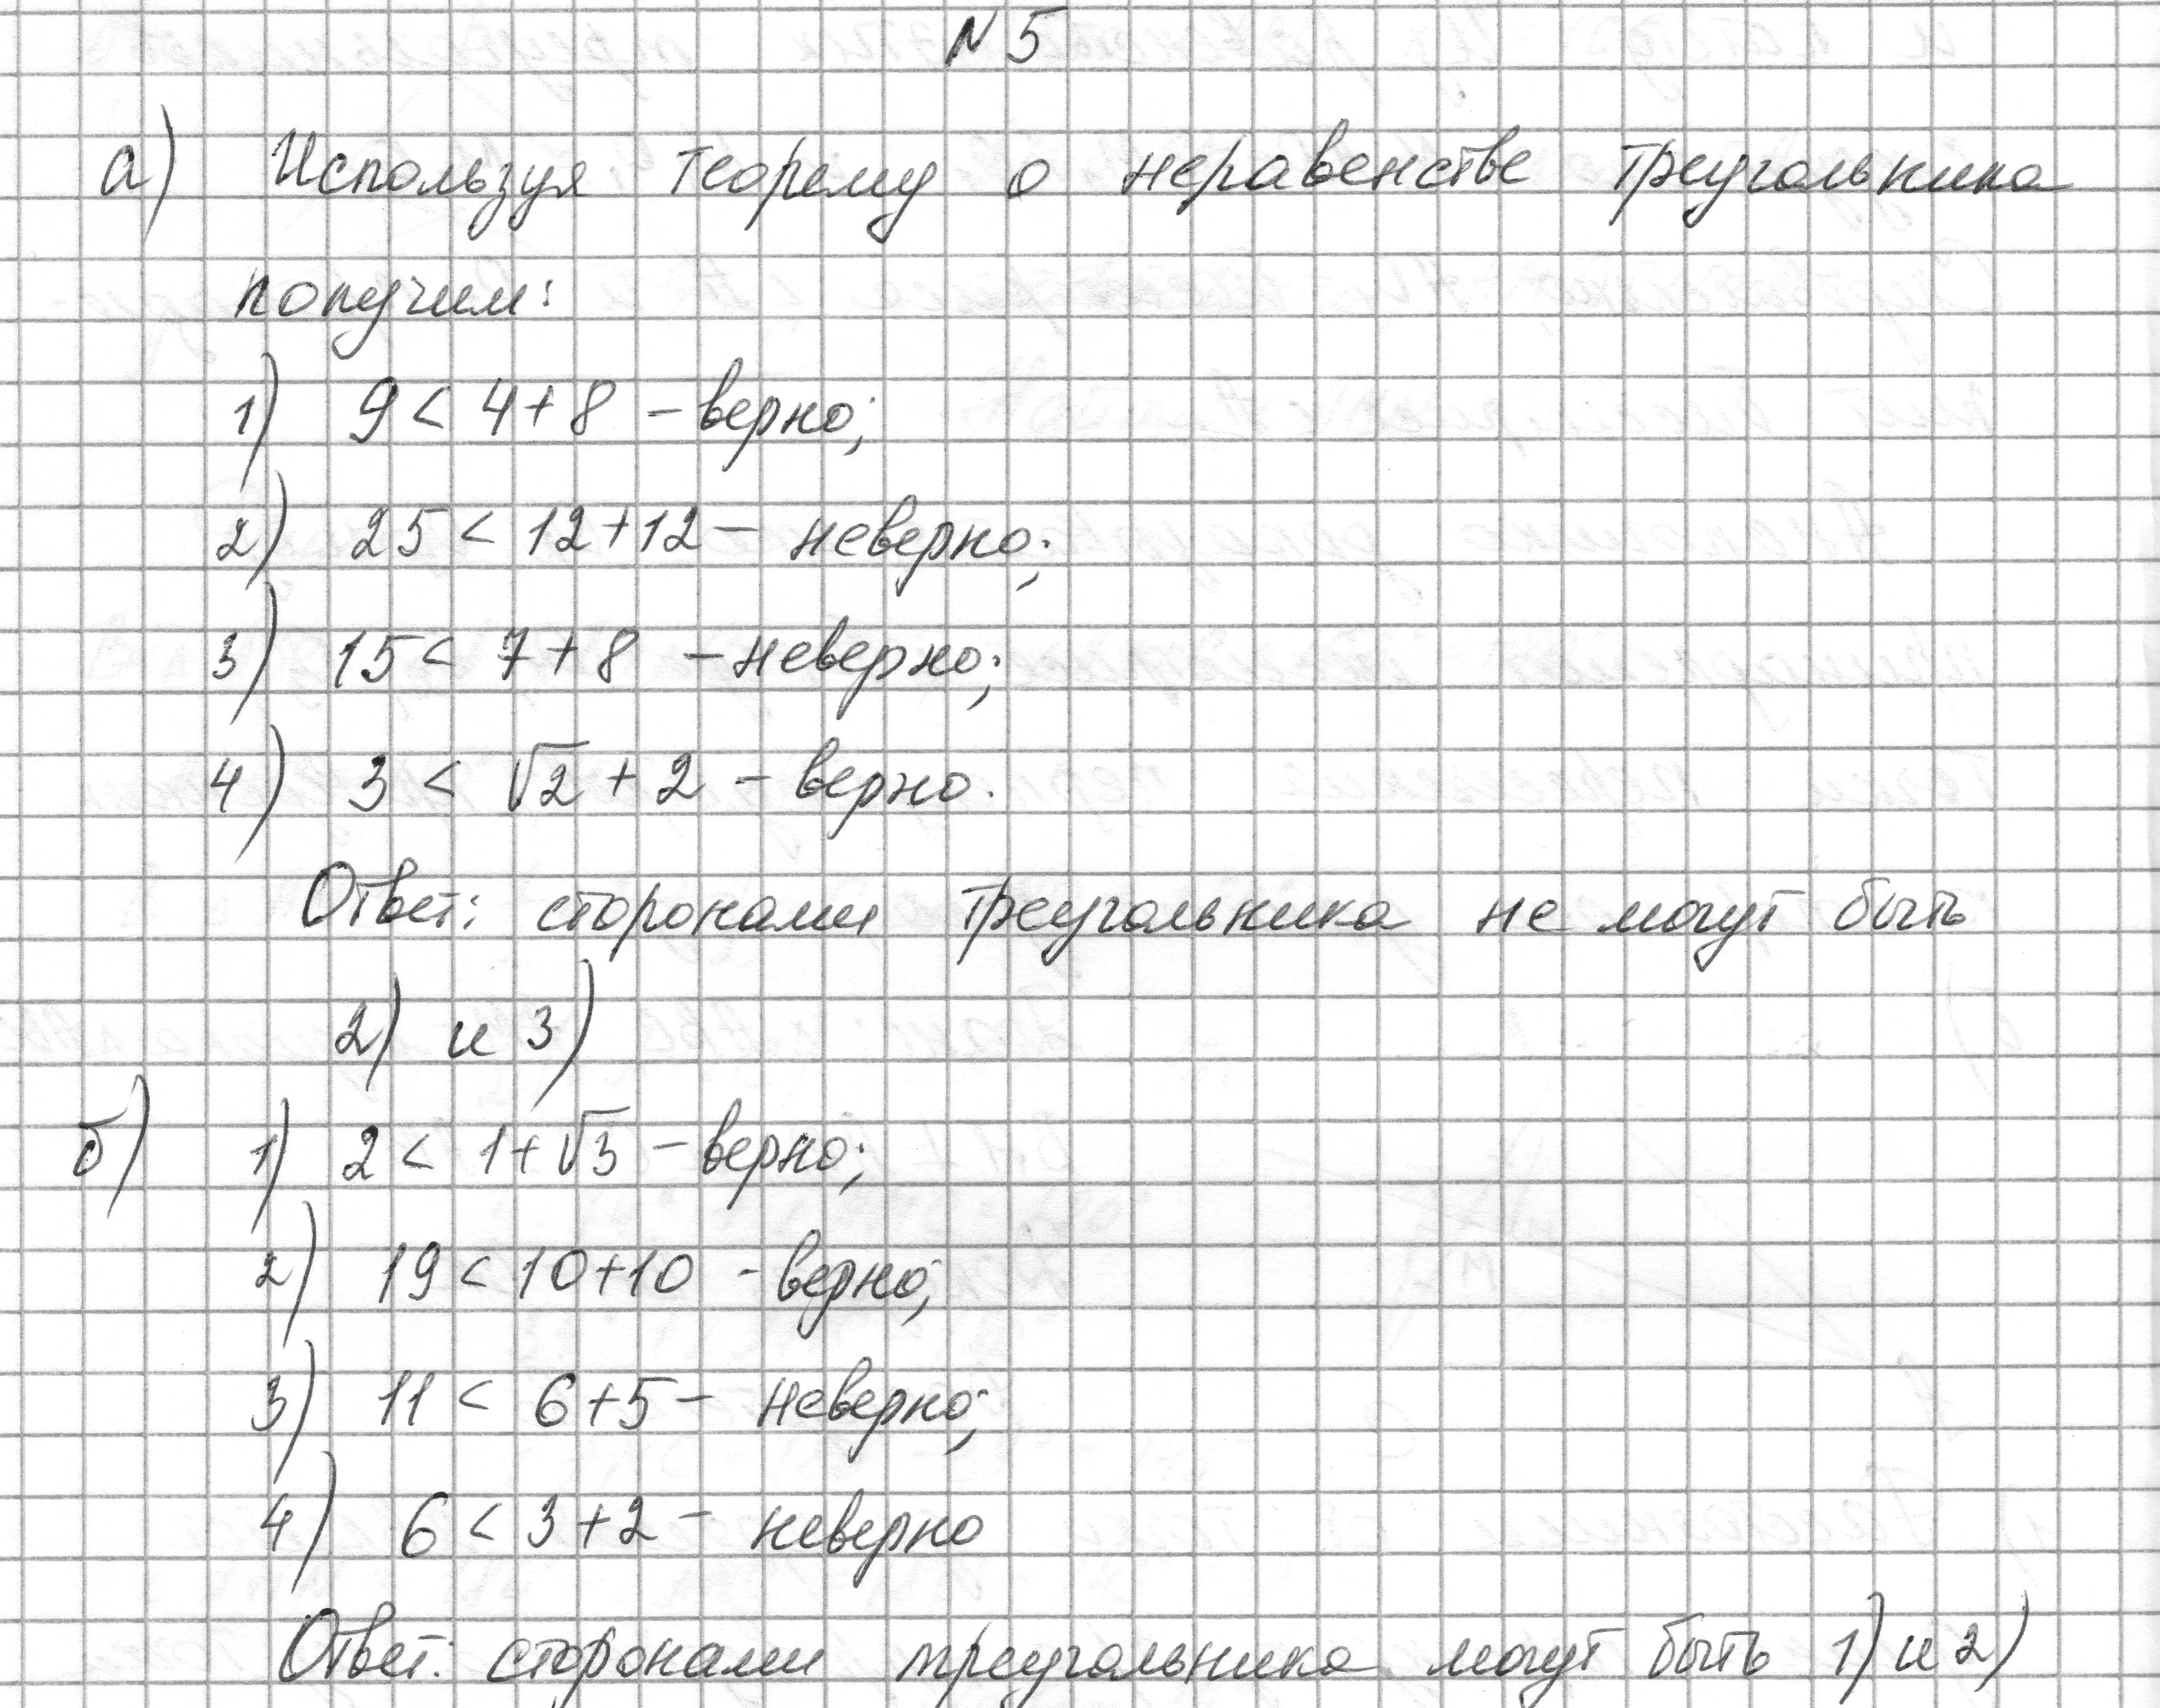 N 5
а) Используя теорему о неравенстве треугольника
получим:
1) 9 < 4+8 – верно;
2) 25 < 12+12 – неверно;
3) 15 < 7+8 – неверно;
4) 3 < √2 + 2 – верно.
Ответ: сторонами треугольника не могут быть
2) и 3)
б) 1) 2 < 1+√3 – верно;
2) 19 < 10+10 - верно;
3) 11 < 6+5 – неверно;
4) 6 < 3+2 – неверно
Ответ: сторонами треугольника могут быть 1) и 2)